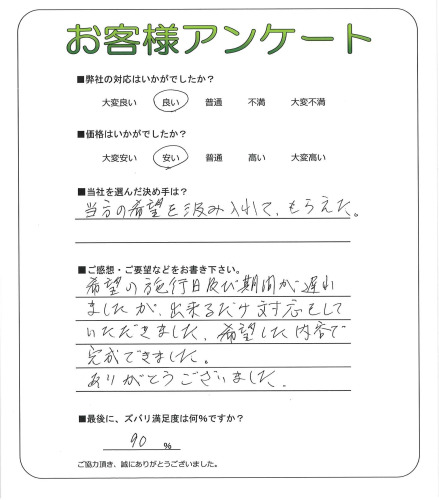 お客様アンケート
■弊社の対応はいかがでしたか?
大変良い 良い 普通 不満 大変不満
■価格はいかがでしたか?
大変安い 安い 普通 高い 大変高い
■当社を選んだ決め手は?
当方の希望を汲み入れて、もらえた。
■ご感想・ご要望などをお書き下さい。
希望の施行日及び期間が遅れ
ましたが、出来るだけ対応をして
いただきました、希望した内容で
完成できました。
ありがとうございました。
■最後に、ズバリ満足度は何%ですか?
90 %
ご協力頂き、誠にありがとうございました。